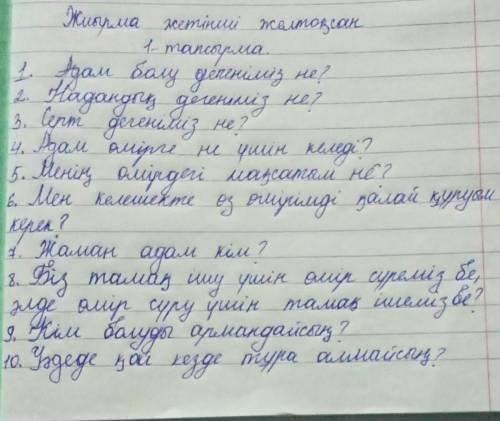 Жиырма жетінші желтоқсан
1-тапсырма.
1. Адам болу дегеніміз не?
2. Надандық дегеніміз не?
3. Серт дегеніміз не?
4. Адам өмірге не үшін келеді?
5. Менің өмірдегі мақсатым не?
6. Мен келешекте өз өмірімді қалай құруым
керек?
7. Жаман адам кім?
8. Біз тамақ ішу үшін өмір сүреміз бе,
әлде өмір сүру үшін тамақ ішеміз бе?
9. Кім болуды армандайсың?
10. Уәдеде қай кезде тұра алмайсың?